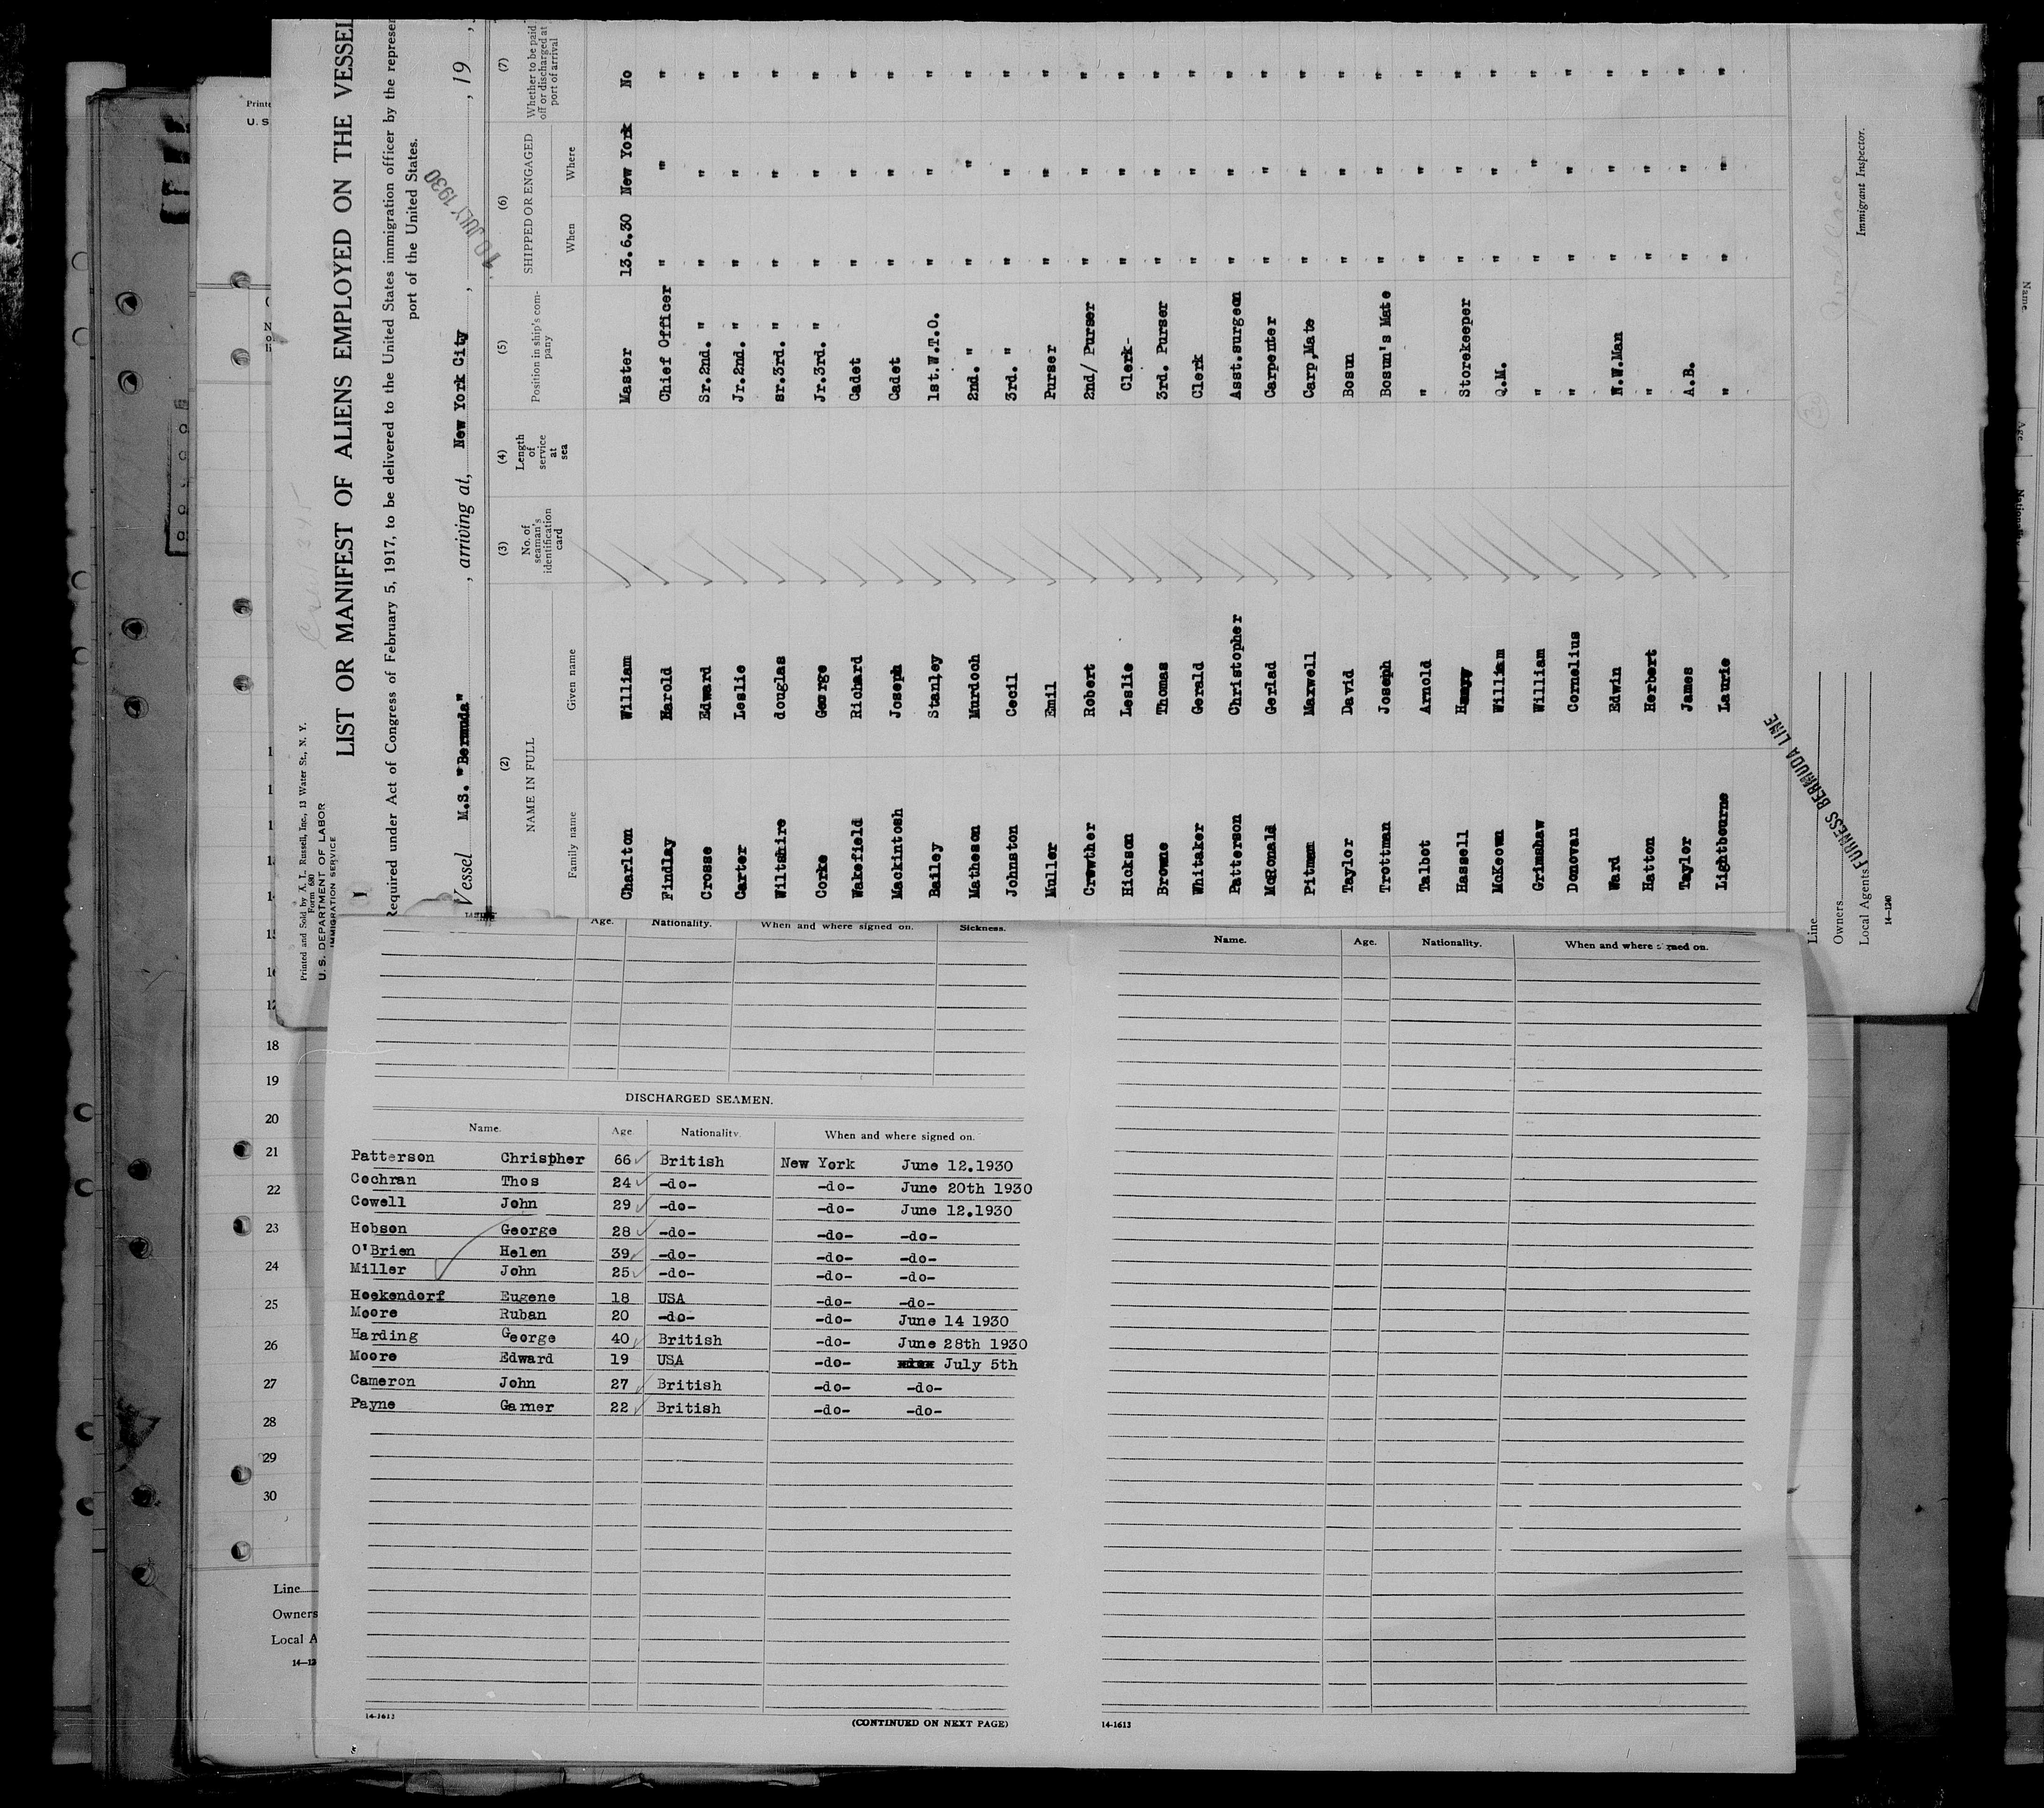 Printed and Sold by A. L. Russell, Inc., 13 Water St., N. Y.
Form 680
U. S. DEPARTMENT OF LABOR
IMMIGRATION SERVICE
1
LIST OR MANIFEST OF ALIENS EMPLOYED ON THE VESSEL
Required under Act of Congress of February 5, 1917, to be delivered to the United States immigration officer by the represen
port of the United States.
10 JULY 1930
Vessel M.S. "Bermuda", arriving at, New York City, , 19 ,
(2) (3) (4) (5) (6) (7)
NAME IN FULL No. of seaman's identification card Length of service at sea Position in ship's company SHIPPED OR ENGAGED Whether to be paid off or discharged at port of arrival
Family name Given name When Where
Charlton William Master 13.6.30 New York No
Findlay Harold Chief Officer " " "
Crosse Edward Sr.2nd. " " " "
Carter Leslie Jr.2nd. " " " "
Wiltshire douglas sr.3rd. " " " "
Corke George Jr.3rd. " " " "
Wakefield Richard Cadet " " "
Mackintosh Joseph Cadet " " "
Bailey Stanley 1st.W.T.O. " " "
Matheson Murdoch 2nd. " " " "
Johnston Cecil 3rd. " " " "
Muller Emil Purser " " "
Crowther Robert 2nd/ Purser " " "
Hickson Leslie Clerk- " " "
Browne Thomas 3rd. Purser " " "
Whitaker Gerald Clerk " " "
Patterson Christopher Asst.surgeon " " "
McDonald Gerlad Carpenter " " "
Pitman Maxwell Carp,Mate " " "
Taylor David Bosun " " "
Trottman Joseph Bosun's Mate " " "
Talbot Arnold " " " "
Hassell Storekeeper " " "
McKeown William Q.M. " " "
Grimshaw William " " " "
Donovan Cornelius " " " "
Ward Edwin N.W.Man " " "
Hatton Herbert " " " "
Taylor James A.B. " " "
Lightbourne Laurie " " " "
Line
Owners
Local Agents FURNESS BERMUDA LINE
Immigrant Inspector.
14-1240
Age. Nationality. When and where signed on. Sickness.
DISCHARGED SEAMEN.
Name. Age. Nationality. When and where signed on.
Patterson Chrispher 66 British New York June 12.1930
Cochran Thos 24 -do- -do- June 20th 1930
Cowell John 29 -do- -do- June 12.1930
Hobson George 28 -do- -do- -do-
O'Brien Helen 39 -do- -do- -do-
Miller John 25 -do- -do- -do-
Hoekendorf Eugene 18 USA -do- -do-
Moore Ruban 20 -do- -do- June 14 1930
Harding George 40 British -do- June 28th 1930
Moore Edward 19 USA -do- July 5th
Cameron John 27 British -do- -do-
Payne Garner 22 British -do- -do-
14-1613
(CONTINUED ON NEXT PAGE)
Name. Age. Nationality. When and where signed on.
14-1613
Printe
U. S
18
19
20
21
22
23
24
25
26
27
28
29
30
Line
Owners
Local A
14-12
Name
Age